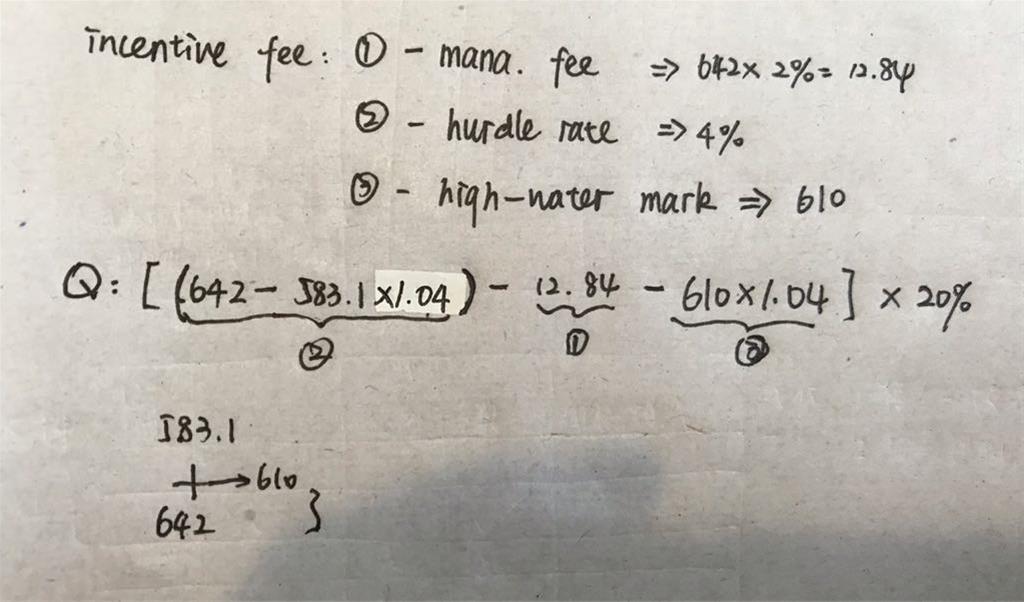 incentive fee: ① - mana. fee ⇒ 642 x 2% = 12.84
② - hurdle rate ⇒ 4%
③ - high-nater mark ⇒ 610
Q: [ (642 - 583.1 x1.04) - 12.84 - 610 x 1.04 ] x 20%
② ① ③
583.1
→ 610
642 }